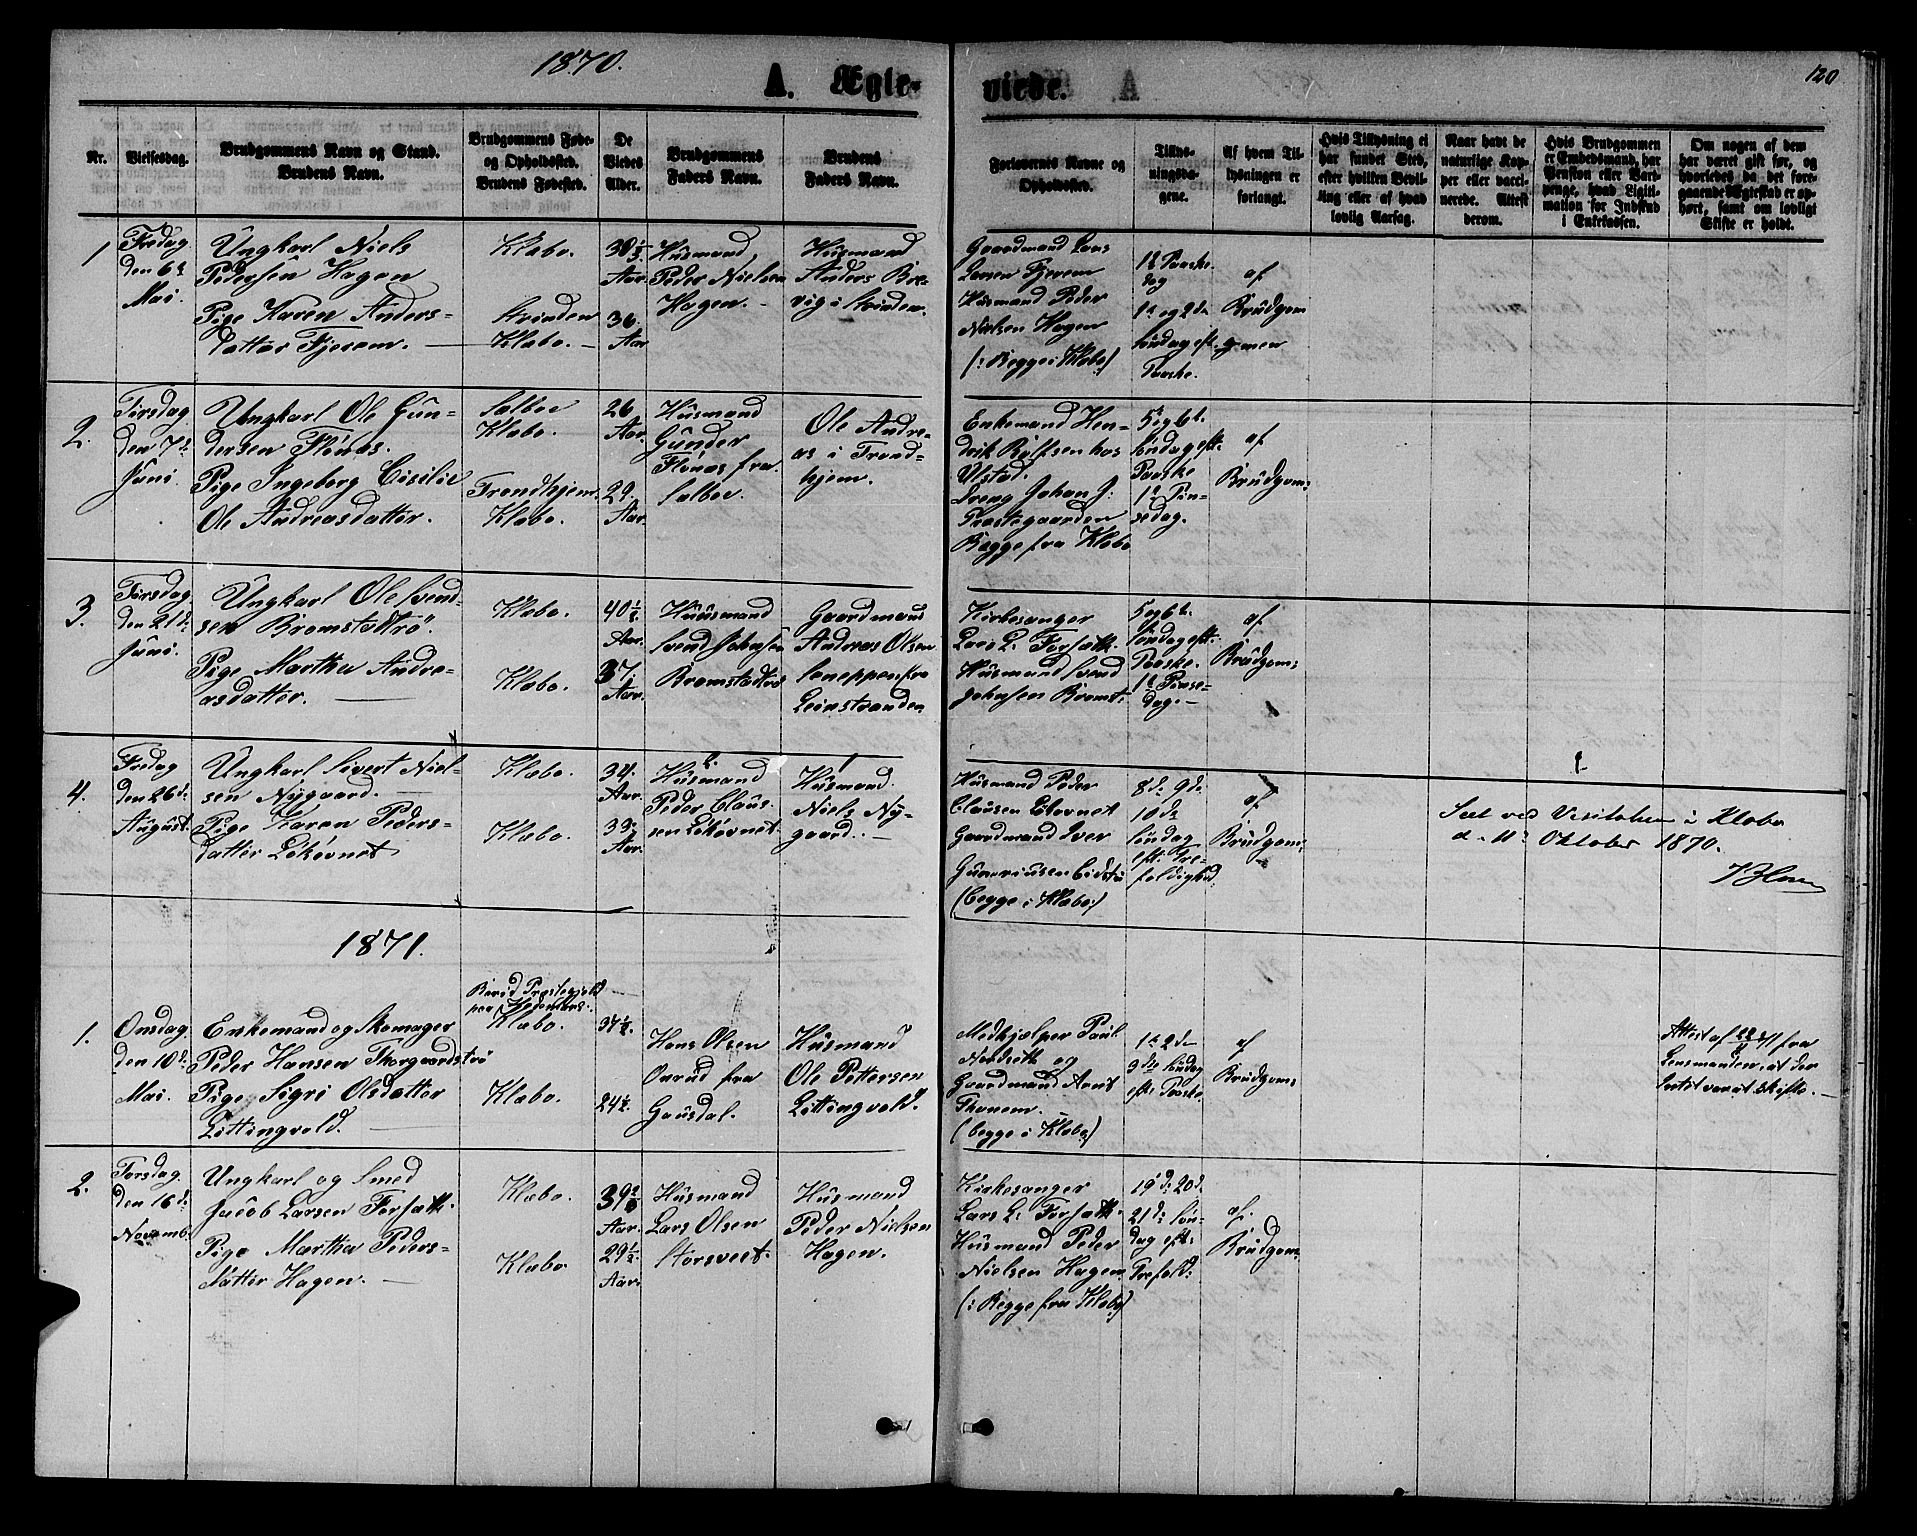 1870.
A. Ægte-
viede.
120
Nr.
Vielsesdag.
Brudgommens Navn og Stand.
Brudens Navn.
Brudgommens Føde-
og Opholdssted.
Brudens Fødested.
De
Viedes
Alder.
Brudgommens
Faders Navn.
Brudens
Faders Navn.
Forlovernes Navne og
Opholdssted.
Tillys-
ningsda-
gene.
Af hvem Til-
lysningen er
forlangt.
Hvis Tillysning ei
har fundet Sted,
efter hvilken Bevil-
ling eller af hvad
lovlig Aarsag.
Naar havt de
naturlige Kop-
per eller vacci-
nerede. Attest
derom.
Hvis Brudgommen
er Embedsmand, har
Pension eller Vart-
penge, hvad Ligiti-
mation for Indskud
i Enkekassen.
Om nogen af dem
har været gift før, og
hvorledes da det fore-
gaaende Ægteskab er op-
hørt, samt om lovligt
Skifte er holdt.
1
Fredag
den 6te
Mai.
Ungkarl Niels
Pedersen Hagen
Pige Karen Anders-
datter Fjerem.
Klæbo.
Klæbo.
30 1/2
Aar.
36.
Aar
Husmand
Peder Nielsen
Hagen.
Husmand
Anders Bre-
vig i
Gaardmand Lars
Larsen Fjerem
Husmand Peder
Nielsen Hagen
(: Begge i Klæbo)
1ste Paaske-
dag
1ste og 2den
Søndag eft.
Paaske.
af
Brudgom-
men
2.
Tirsdag
den 7de
Juni.
Ungkarl Ole Gun-
dersen Flønæs.
Pige Ingeborg Cisilie
Ole Andreasdatter.
Sælbo
Klæbo.
Trondhjem.
Klæbo.
26
Aar.
29.
Aar.
Husmand
Gunder
Flønæs fra
Sælbo.
Ole Andre-
as i Trond-
hjem.
Enkemand Hen-
drik Rolfsen hos
Ulstad.
Dreng Johan J:
Præstegaarden
Begge fra Klæbo
5te og 6te
Søndag eft.
Paaske
1ste Pin-
sedag.
af
Brudgom:
3.
Tirsdag
den 21de
Juni.
Ungkarl Ole Svend-
sen Bromstadtrø.
Pige Martha Andre-
asdatter.
Klæbo.
Klæbo.
40 1/2
Aar.
37.
Aar.
Huusmand
Svend Johnsen
Bromstadtrø
Gaardmand
Andreas Olsen
fra
Leinstranden
Kirkesanger
Lars L. Forsæth.
Husmand Svend
Johnsen Bromst:
5 og 6te
Søndag eft.
Paaske.
1ste Pinse-
dag.
af
Brudgom:
4.
Fredag
den 26de
August.
Ungkarl Sivert Niel-
sen Nygaard.
Pige Karen Peders-
datter
Klæbo.
Klæbo.
34.
Aar.
33.
Aar.
Husmand
Peder Claus-
sen
Husmand
Niels Ny-
gaard.
Husmand Peder
Clausen
Gaardmand Iver
Guneriussen
(begge i Klæbo)
8de 9de
10de
Søndag
eft. Tre-
foldighed.
af
Brudgom:
Seet ved Visitatsen i Klæbo
d. 11te Oktober 1870.
1871.
1.
Onsdag.
den 10de
Mai.
Enkemand og Skomager
Peder Hansen Thorgaardstrø
Pige Sigri Olsdatter
Littingvold.
Præstegjeld
paa Hedemarken.
Klæbo.
Klæbo.
37 1/2
24 1/2.
Hans Olsen
fra
Gausdal.
Husmand
Ole Pettersen
Littingvold.
Medhjælper Poul
og
Gaardmand Arnt
Thonem.
(begge i Klæbo)
1ste 2den
3die Søndag
eft. Paaske
af
Brudgom:
Attest af 22/4 71 fra
Lensmanden, at der
Intet var at skifte.
2.
Torsdag.
den 16de
Novemb.
Ungkarl og Smed
Jacob Larsen Forsæth.
Pige Martha Peders-
datter Hagen.
Klæbo.
Klæbo
39
Aar.
29 1/2
Aar.
Husmand
Lars Olsen
Storsveet.
Husmand
Peder Nielsen
Hagen.
Kirkesanger
Lars L: Forsæth.
Husmand Peder
Nielsen Hagen
(: Begge fra Klæbo)
19de 20de
21de Søn-
dag eft.
Trefold:
af.
Brudgom: